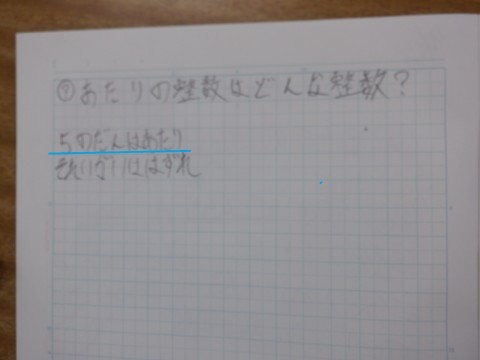 ？あたりの整数はどんな整数？
5のだんはあたり
それいがいははずれ